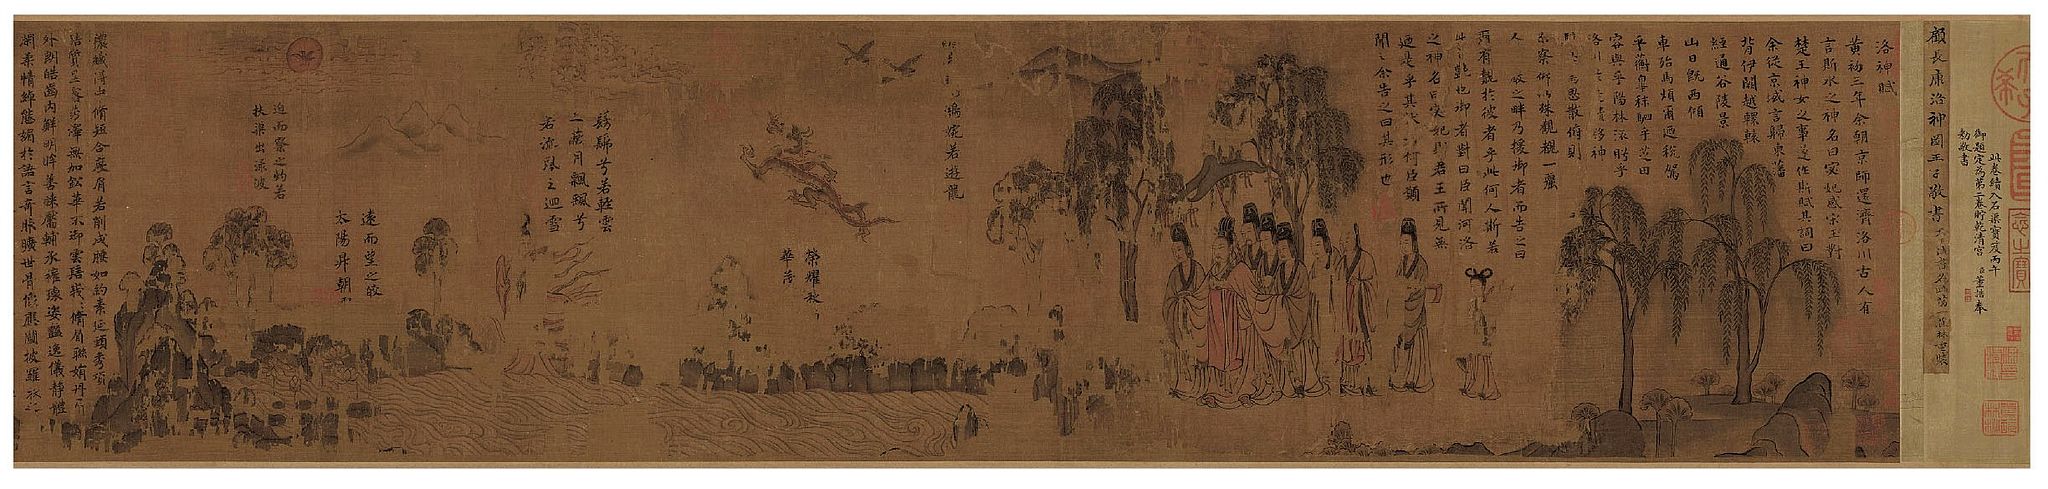 御題定為第二卷貯乾清宮 臣董誥奉
勅敬書
此卷續入石渠寶笈丙午
顧長康洛神圖王子敬書
洛神賦
黃初三年余朝京師還濟洛川古人有
言斯水之神名曰宓妃感宋玉對
楚王神女之事遂作斯賦其詞曰
余從京域言歸東藩
背伊闕越轘轅
經通谷陵景
山日既西傾
車殆馬煩爾迺稅駕
乎蘅皋秣駟乎芝田
容與乎陽林流眄乎
洛川於是精移神
焉思散俯則
未察仰以殊觀覩一麗
人 巖之畔乃援御者而告之曰
爾有覿於彼者乎此何人斯若
此之艷也御者對曰臣聞河洛
之神名曰宓妃則君王所見無
迺是乎其狀若何臣願
聞之余告之曰其形也
鴻婉若遊龍
榮耀秋
華茂
髣髴兮若輕雲
之蔽月飄飄兮
若流風之迴雪
遠而望之皎
太陽升朝
迫而察之灼若
扶渠出淥波
穠纖得中脩短合度肩若削成腰如約素延頸秀項
皓質呈露芳澤無加鉛華不御雲髻峩峩脩眉聯娟丹脣
外朗皓齒內鮮明眸善睞靨輔承權瓌姿豔逸儀靜體
閑柔情綽態媚於語言奇服曠世骨像應圖披羅衣